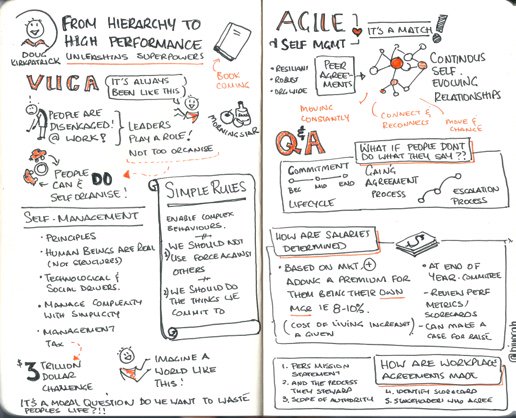 DOUG
KIRKPATRICK
FROM HIERARCHY TO
HIGH PERFORMANCE
UNLEASHING SUPERPOWERS
BOOK
COMING
VUCA
IT'S ALWAYS
BEEN LIKE THIS
PEOPLE ARE
DISENGAGED!
@ WORK?
LEADERS
PLAY A ROLE!
NOT TOO ORGANISE
MORNINGSTAR
PEOPLE
CAN & DO
SELFORGANISE!
SIMPLE RULES
ENABLE COMPLEX
BEHAVIOURS.
1) WE SHOULD NOT
USE FORCE AGAINST
OTHERS
2) WE SHOULD DO
THE THINGS WE
COMMIT TO
SELF-MANAGEMENT
• PRINCIPLES
• HUMAN BEINGS ARE REAL
(NOT STRUCTURES)
• TECHNOLOGICAL &
SOCIAL DRIVERS.
• MANAGE COMPLEXITY
WITH SIMPLICITY
• MANAGEMENT
TAX
$3 TRILLION
DOLLAR
CHALLENGE!
IMAGINE A
WORLD LIKE
THIS!
IT'S A MORAL QUESTION DO WE WANT TO WASTE
PEOPLES LIFE?!!
AGILE
& SELF MGMT
IT'S A MATCH!
• RESILIANT
• ROBUST
• ORG WIDE
PEER
AGREE-
MENTS
CONTINOUS
SELF
EVOLVING
RELATIONSHIPS
MOVING
CONSTANTLY
CONNECT &
RECONNECTS
MOVE &
CHANGE
Q&A
WHAT IF PEOPLE DON'T
DO WHAT THEY SAY??
COMMITMENT
BEG MID END
LIFECYCLE
GAING
AGREEMENT
PROCESS
ESCALATION
PROCESS
HOW ARE SALARIES
DETERMINED
• BASED ON MKT. +
ADDING A PREMIUM FOR
THEM BEING THEIR OWN
MGR IE 8-10%.
(COST OF LIVING INCREASE)
A GIVEN
• AT END OF
YEAR. COMMITTEE
- REVIEW PERF
METRICS/
SCORECARDS
- CAN MAKE A
CASE FOR RAISE
HOW ARE WORKPLACE
AGREEMENTS MADE
1. PERS MISSION
STATEMENT
2. AND THE PROCESS
THEY STEWARD
3. SCOPE OF AUTHORITY
4. IDENTIFY SCORECARD
5. STAKEHOLDERS WHO AGREE